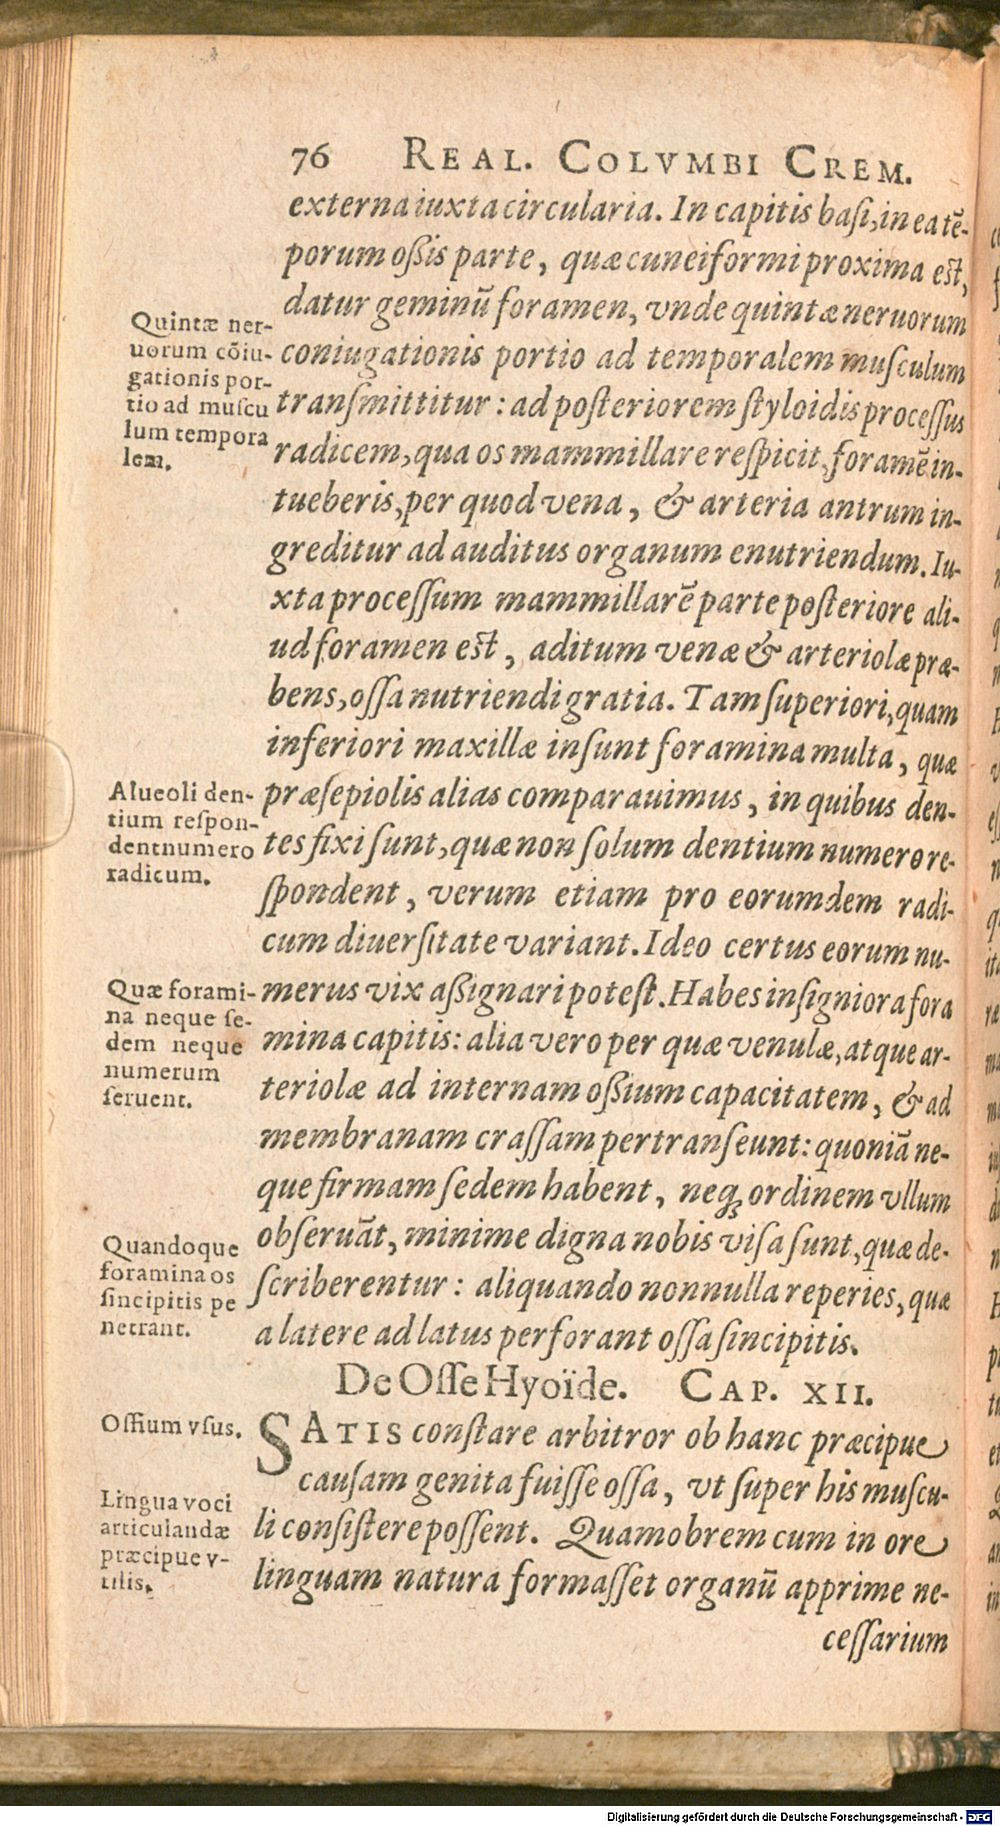 76 REAL. COLVMBI CREM.
externa iuxta circularia. In capitis basi, in ea tē-
porum oßis parte, quæ cuneiformi proxima est,
datur geminū foramen, vnde quintæ neruorum
coniugationis portio ad temporalem musculum
transmittitur: ad posteriorem styloidis processus
radicem, qua os mammillare respicit, foramē in-
tueberis, per quod vena, & arteria antrum in-
greditur ad auditus organum enutriendum. Iu-
xta processum mammillarē parte posteriore ali-
ud foramen est, aditum venæ & arteriolæ præ-
bens, ossa nutriendi gratia. Tam superiori, quam
inferiori maxillæ insunt foramina multa, quæ
præsepiolis alias comparauimus, in quibus den-
tes fixi sunt, quæ non solum dentium numero re-
spondent, verum etiam pro eorumdem radi-
cum diuersitate variant. Ideo certus eorum nu-
merus vix aßignari potest. Habes insigniora fora
mina capitis: alia vero per quæ venulæ, atque ar-
teriolæ ad internam oßium capacitatem, & ad
membranam crassam pertranseunt: quoniā ne-
que firmam sedem habent, neqꝫ ordinem vllum
obseruāt, minime digna nobis visa sunt, quæ de-
scriberentur: aliquando nonnulla reperies, quæ
a latere ad latus perforant ossa sincipitis.
Quintæ ner-
uorum cōiu-
gationis por-
tio ad muscu
lum tempora
lem.
Alueoli den-
tium respon-
dent numero
radicum.
Quæ forami-
na neque se-
dem neque
numerum
seruent.
Quandoque
foramina os
sincipitis pe
netrant.
De Osse Hyoïde. CAP. XII.
SATIS constare arbitror ob hanc præcipue
causam genita fuisse ossa, vt super his muscu-
li consistere possent. Quamobrem cum in ore
linguam natura formasset organū apprime ne-
cessarium
Ossium vsus.
Lingua voci
articulandæ
præcipue v-
tilis.
Digitalisierung gefördert durch die Deutsche Forschungsgemeinschaft - DFG